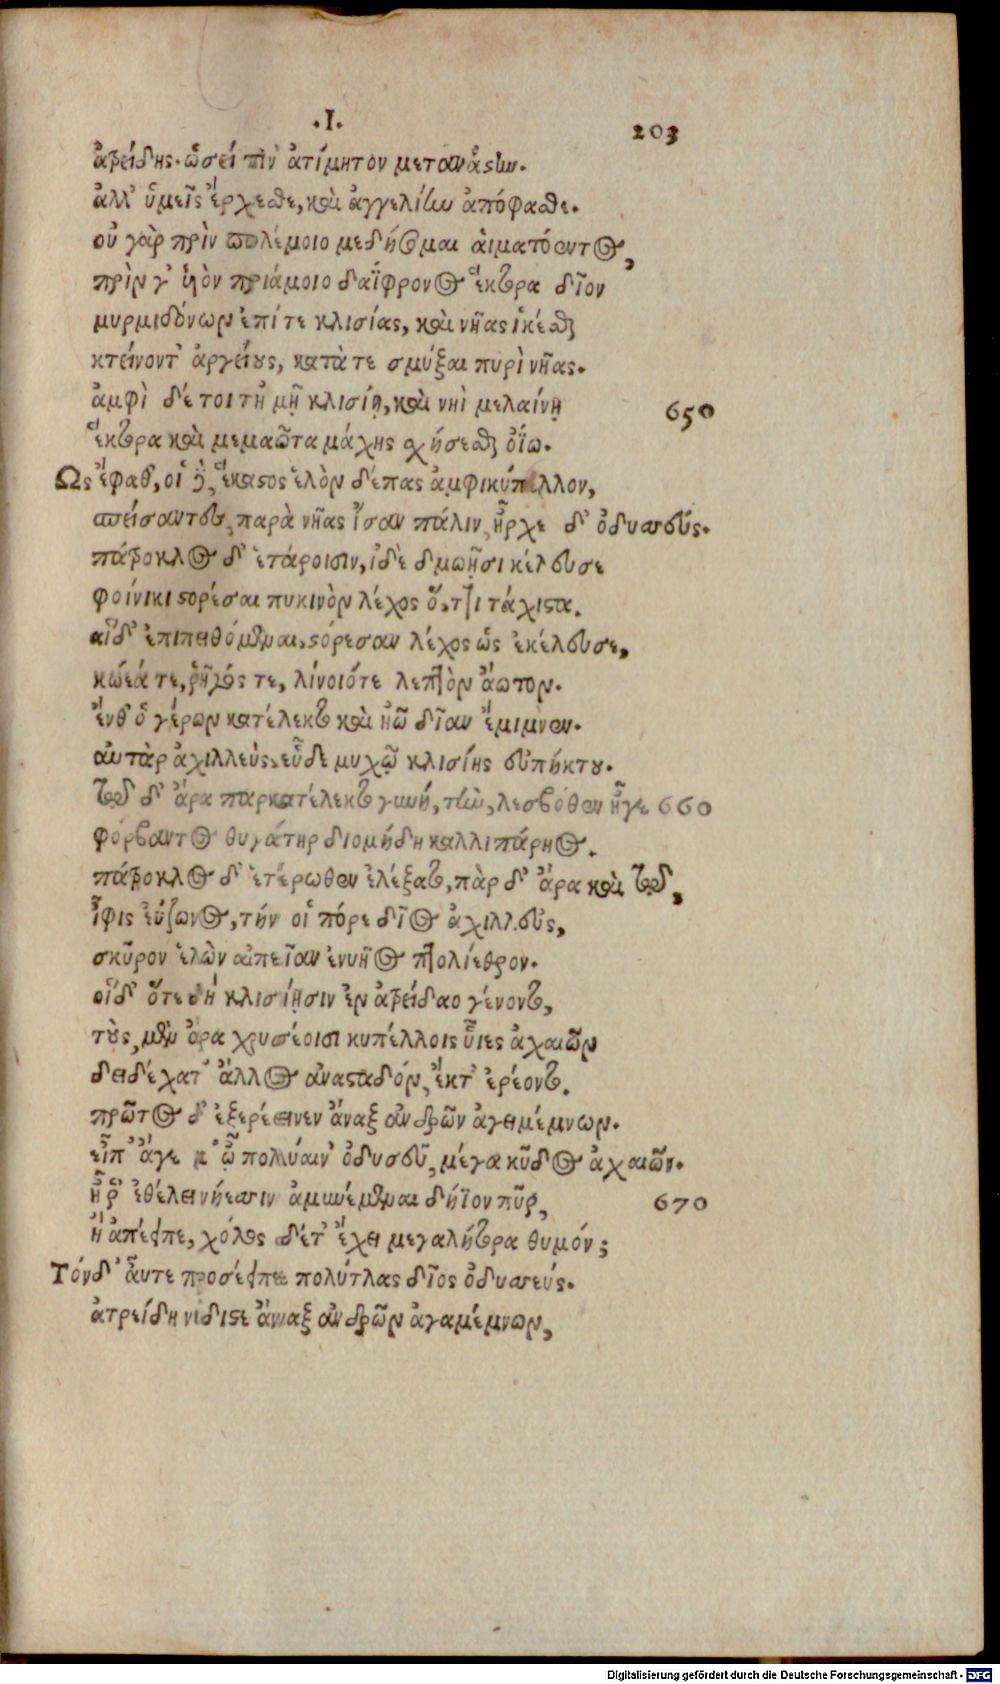 .Ι. 203
ἀτρείδης. ὡσεί τιν' ἀτίμητον μετανάστην.
ἀλλ' ὑμεῖς ἔρχεσθε, καὶ ἀγγελίην ἀπόφασθε.
οὐ γὰρ πρὶν πολέμοιο μεδήσομαι αἱματόεντος,
πρὶν γ' υἱὸν πριάμοιο δαΐφρονος ἕκτορα δῖον
μυρμιδόνων ἐπί τε κλισίας, καὶ νῆας ἱκέσθαι
κτείνοντ' ἀργείους, κατὰ τε σμύξαι πυρὶ νῆας.
ἀμφὶ δέ τοι τῇ μῇ κλισίῃ, καὶ νηῒ μελαίνῃ 650
ἕκτορα καὶ μεμαῶτα μάχης σχήσεσθαι ὀΐω.
Ως ἔφαθ', οἱ δὲ ἕκαστος ἑλὼν δέπας ἀμφικύπελλον,
σπείσαντες, παρὰ νῆας ἴσαν πάλιν, ἦρχε δ' ὀδυσσεύς.
πάτροκλος δ' ἑτάροισιν, ἰδὲ δμωῇσι κέλευσε
φοίνικι στορέσαι πυκινὸν λέχος ὅ,ττι τάχιστα.
αἱ δ' ἐπιπειθόμεναι, στόρεσαν λέχος ὡς ἐκέλευσε,
κώεά τε, ῥῆγός τε, λίνοιό τε λεπτὸν ἄωτον.
ἔνθ' ὁ γέρων κατέλεκτο καὶ ἠῶ δῖαν ἔμιμνεν.
αὐτὰρ ἀχιλλεὺς εὗδε μυχῷ κλισίης εὐπήκτου.
τῷ δ' ἄρα παρκατέλεκτο γυνή, τὴν, λεσβόθεν ἦγε 660
φόρβαντος θυγάτηρ διομήδη καλλιπάρῃος.
πάτροκλος δ' ἑτέρωθεν ἐλέξατο, πὰρ δ' ἄρα καὶ τῷ,
ἶφις ἐΰζωνος, τήν οἱ πόρε δῖος ἀχιλλεὺς,
σκῦρον ἑλὼν αἰπεῖαν ἐνυῆος πτολίεθρον.
οἱ δ' ὅτε δὴ κλισίῃσιν ἐν ἀτρείδαο γένοντο,
τοὺς μὲν ἄρα χρυσέοισι κυπέλλοις υἷες ἀχαιῶν
δειδέχατ' ἄλλος ἀνασταδόν, ἔκ τ' ἐρέοντο.
πρῶτος δ' ἐξερέεινεν ἄναξ ἀνδρῶν ἀγαμέμνων.
εἶπ' ἄγε μ' ὦ πολύαιν' ὀδυσεῦ, μέγα κῦδος ἀχαιῶν.
ἦ ῥ' ἐθέλει νήεσσιν ἀμυνέμεναι δήϊον πῦρ, 670
ἢ ἀπέειπε, χόλος δ' ἔτ' ἔχει μεγαλήτορα θυμόν;
Τόν δ' αὖτε προσέειπε πολύτλας δῖος ὀδυσσεύς.
ἀτρείδη κύδιστε ἄναξ ἀνδρῶν ἀγαμέμνων,
Digitalisierung gefördert durch die Deutsche Forschungsgemeinschaft - DFG